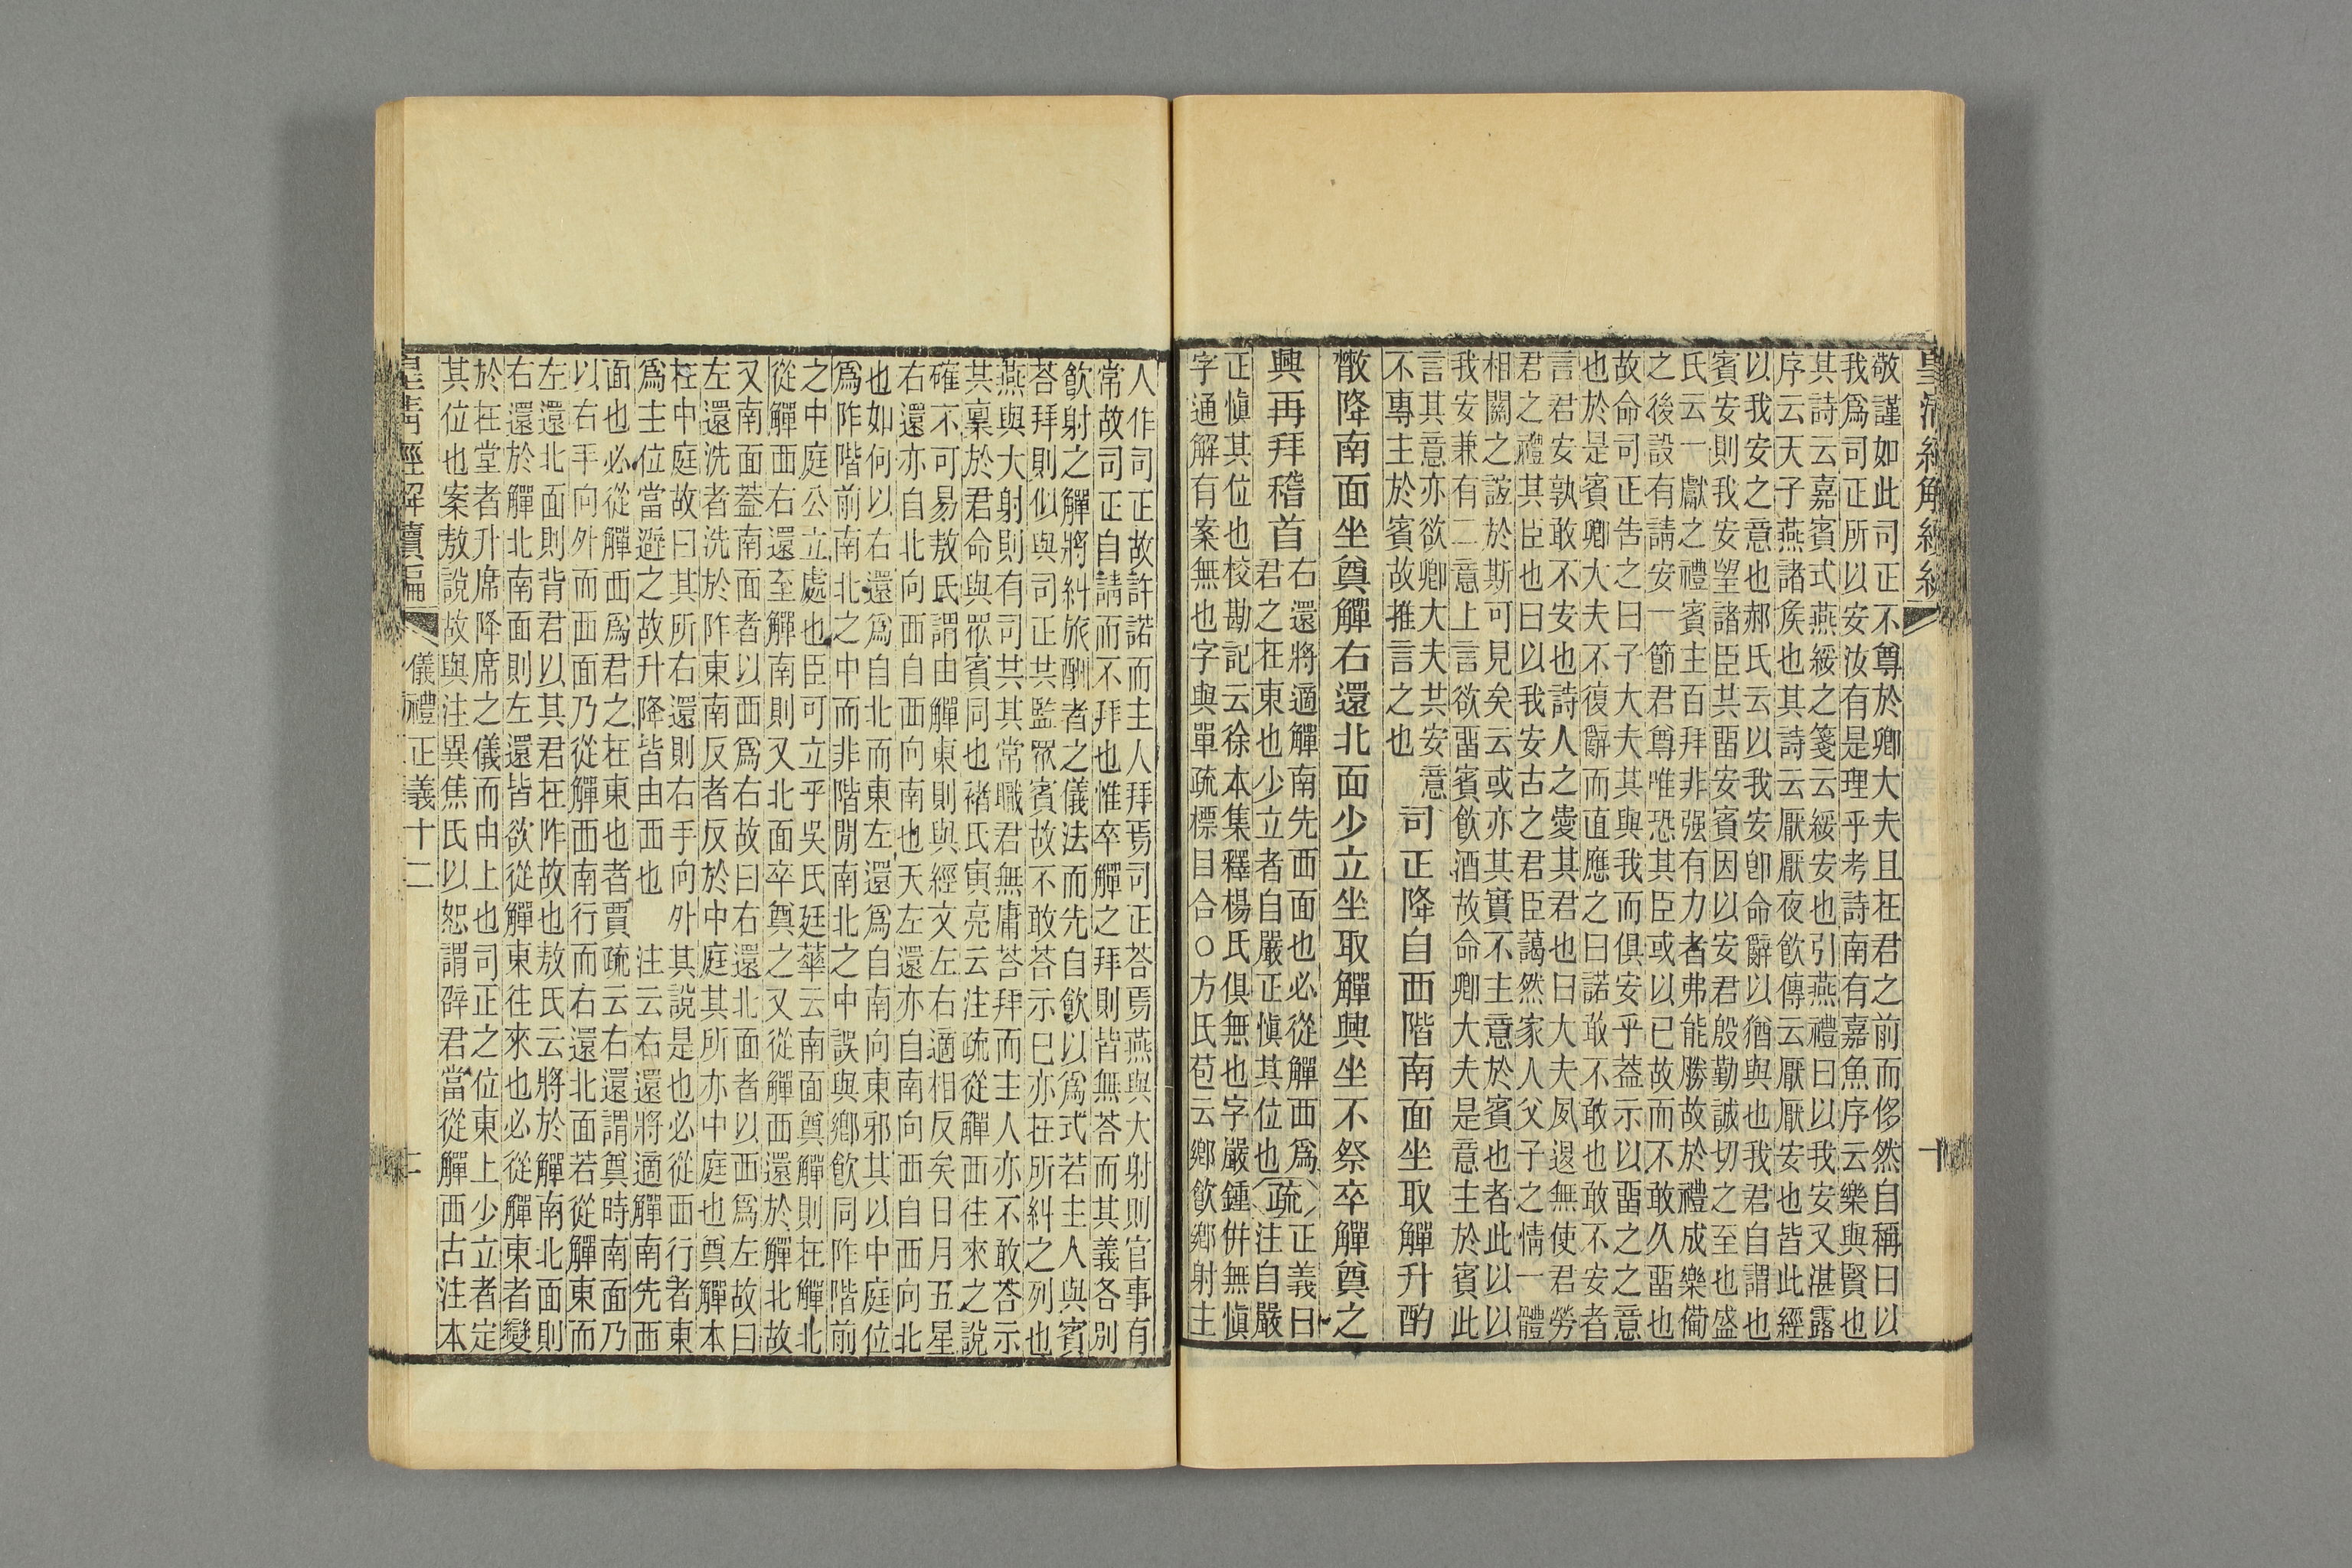 皇清經解續編
十
敬謹如此司正不尊於卿大夫且在君之前而侈然自稱曰以
我爲司正所以安汝有是理乎考詩南有嘉魚序云樂與賢也
其詩云嘉賓式燕綏之箋云綏安也引燕禮曰以我安又湛露
序云天子燕諸矦也其詩云厭厭夜飮傳云厭厭安也皆此經
以我安之意也郝氏云以我安卽命辭以猶與也我君自謂也
賓安則我安望諸臣共畱安賓因以安君殷勤誠切之至也盛
氏云一獻之禮賓主百拜非强有力者弗能勝故於禮成樂備
之後設有請安一節君尊唯恐其臣或以已故而不敢久畱也
故命司正告之曰子大夫其與我而俱安乎葢示以畱之之意
也於是賓卿大夫不復辭而直應之曰諾敢不敢也敢不安者
言君安孰敢不安也詩人之愛其君也曰大夫夙退無使君勞
君之禮其臣也曰以我安古之君臣藹然家人父子之情一體
相關之誼於斯可見矣云或亦其實不主意於賓也者此以以
我安兼有二意上言欲畱賓飮酒故命卿大夫是意主於賓此
言其意亦欲卿大夫共安意
不專主於賓故推言之也
司正降自西階南面坐取觶升酌
散降南面坐奠觶右還北面少立坐取觶興坐不祭卒觶奠之
興再拜稽首
右還將適觶南先西面也必從觶西爲
君之在東也少立者自嚴正愼其位也
疏
正義曰
注自嚴
正愼其位也校勘記云徐本集釋楊氏俱無也字嚴鍾併無愼
字通解有案無也字與單疏標目合○方氏苞云鄕飮鄕射主
人作司正故許諾而主人拜焉司正荅焉燕與大射則官事有
常故司正自請而不拜也惟卒觶之拜則皆無荅而其義各別
飮射之觶將糾旅酬者之儀法而先自飮以爲式若主人與賓
荅拜則似與司正共監眾賓故不敢荅示巳亦在所糾之列也
燕與大射則有司共其常職君無庸荅拜而主人亦不敢荅示
共稟於君命與眾賓同也褚氏寅亮云注疏從觶西往來之說
確不可易敖氏謂由觶東則與經文左右適相反矣日月五星
右還亦自北向西自西向南也天左還亦自南向西自西向北
也如何以右還爲自北而東左還爲自南向東邪其以中庭位
爲阼階前南北之中而非階閒南北之中誤與鄕飮同阼階前
之中庭公立處也臣可立乎吳氏廷華云南面奠觶則在觶北
從觶西右還至觶南則又北面卒奠之又從觶西還於觶北故
又南面葢南面者以西爲右故曰右還北面者以西爲左故曰
左還洗者洗於阼東南反者反於中庭其所亦中庭也奠觶本
在中庭故曰其所右還則右手向外其說是也必從西行者東
爲主位當避之故升降皆由西也　注云右還將適觶南先西
面也必從觶西爲君之在東也者賈疏云右還謂奠時南面乃
以右手向外而西面乃從觶西南行而右還北面若從觶東而
左還北面則背君以其君在阼故也敖氏云將於觶南北面則
右還於觶北南面則左還皆欲從觶東往來也必從觶東者變
於在堂者升席降席之儀而由上也司正之位東上少立者定
其位也案敖說故與注異焦氏以恕謂辟君當從觶西古注本
皇淸經解續編
儀禮正義十二